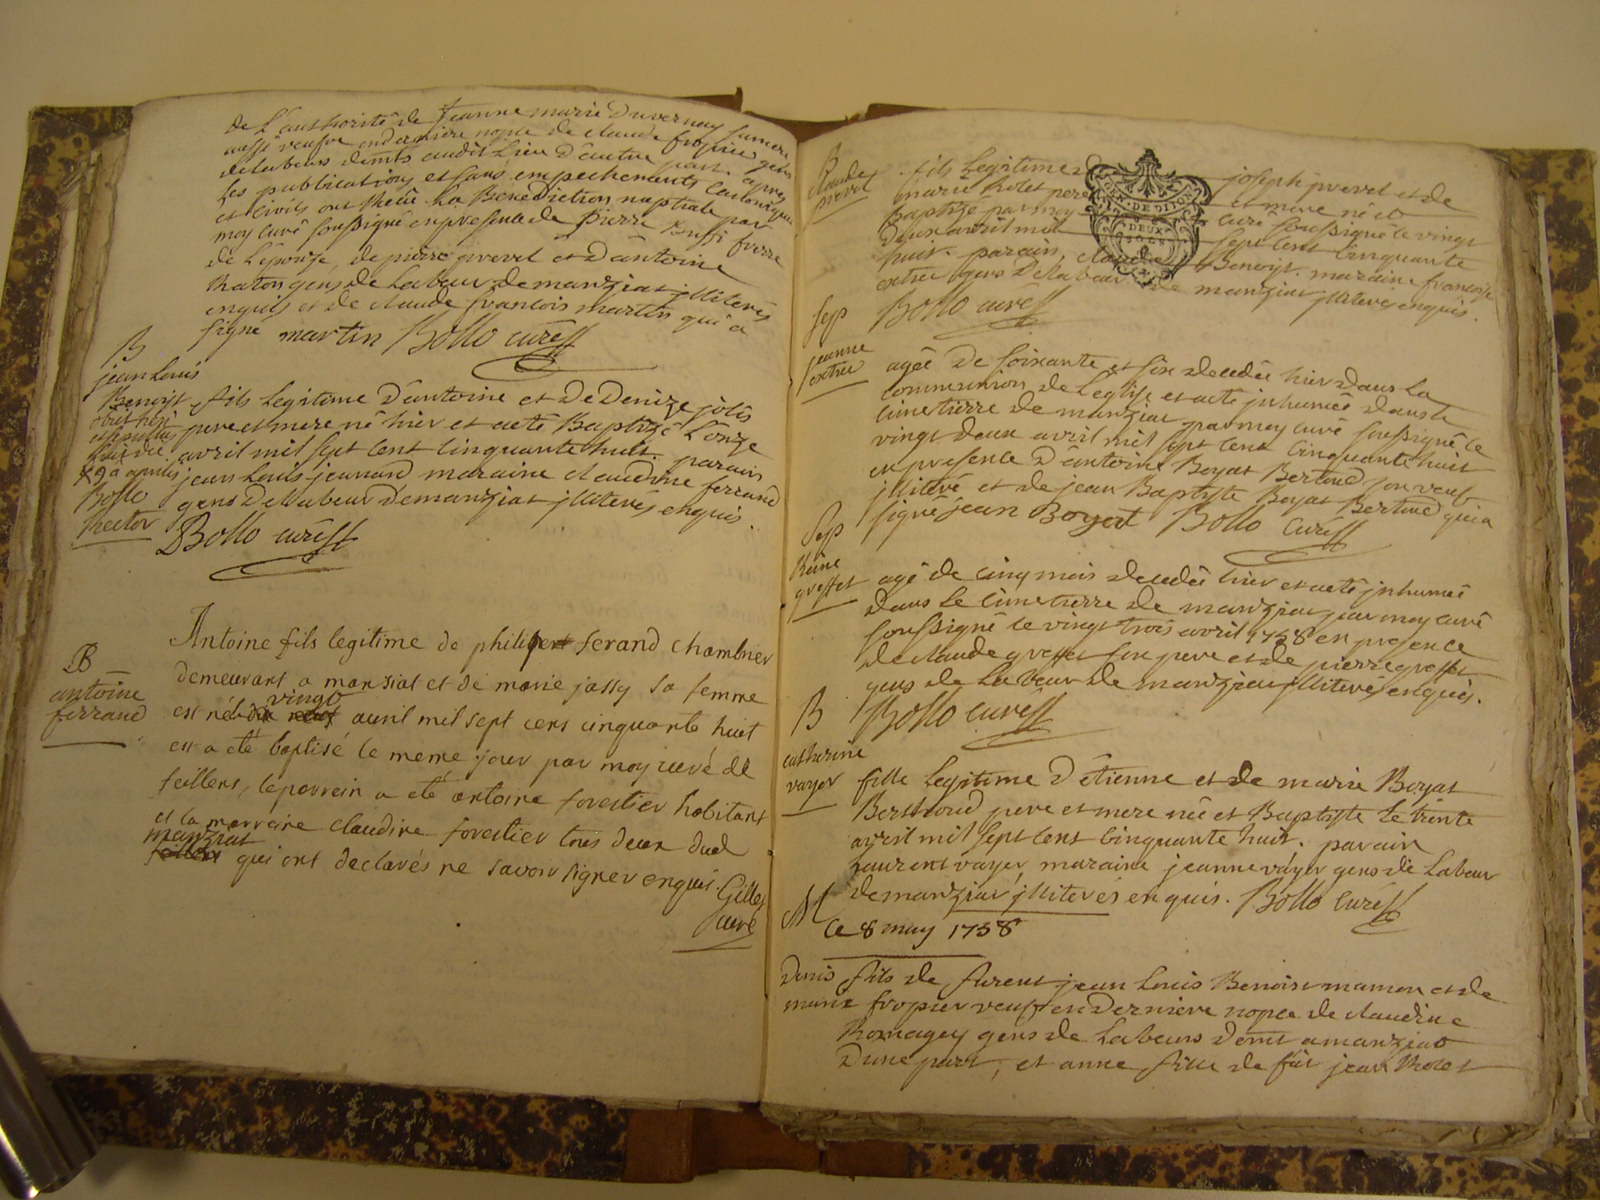 de L'authorité de jeanne marie Duvernay sa mere
aussi veufve en derniere nopce de claude fropier gens
de labeurs demts audit Lieu d'autre part. apres
les publications et sans empechements canoniques
et civils ont Receu la Benediction nuptiale par
moy curé soussigné en presence de pierre Buffi frere
de L'épouze, de pierre prevel et d'antoine
Raton gens de Labeur de manziat jlliterés
enquis et de claude francois martin qui a
signé martin Bollo curé
B
jean Louis
Benoist
fils legitime d'antoine et de Denize jolis
pere et mere né hier et a eté Baptizé L'onze
avril mil sept cent cinquante huit. parain
jean Louis jeunand maraine claudine ferrand
gens de Labeur de manziat jlliterés enquis.
Bollo
Rector
Bollo curé
B
antoine
ferrand
Antoine fils legitime de philipert ferand chambrier
demeurant a manziat et de marie jassy sa femme
est né le vingt avril mil sept cens cinquante huit
et a eté baptisé le meme jour par moy curé de
feillens, le parrein a eté antoine forestier habitant
et la marreine claudine forestier tous deux dud
manziat
feillens qui ont declarés ne savoir signer enquis Gilles
curé
B
claude
prevel
fils Legitime de joseph prevel et de
marie Rolet pere et mere né et
Baptizé par moy curé soussigné le vingt
deux avril mil sept cent cinquante
huit. parain, claude Benoist. maraine francoise
extrer gens de labeur de manziat jlliteres enquis.
GEN. DE DIJON
DEUX
SOLS
Bollo curé
Sep
jeanne
extrer
agée de soixante et six decedée hier dans la
communion de L'eglise et a eté jnhumée dans le
cimetierre de manziat par moy curé soussigné le
vingt deux avril mil sept cent cinquante huit
en presence d'antoine Boyat Bertoud son veuf
jlliteré et de jean Baptiste Boyat Bertoud qui a
signé jean Boyat Bollo Curé
Sep
Reine
greffet
agé de cinq mois decedée hier et a eté jnhumée
dans le cimetierre de manziat par moy curé
soussigné le vingt trois avril 1758 en presence
de claude greffet son pere et de pierre greffet
gens de Labeur de manziat jlliterés enquis.
Bollo curé
B
catherine
vayer
fille legitime d'étienne et de marie Boyat
Bertoud pere et mere née et Baptiste le trente
avril mil sept cent cinquante huit. parain
laurent vayer, maraine jeanne vayer gens de Labeur
de manziat jlliterés enquis. Bollo Curé
M
Ce 8 may 1758
Denis fils de furent jean Louis Benoist mamon et de
marie fropier veuf en derniere nopce de claudine
Romagey gens de Labeurs demt a manziat
d'une part, et anne fille de fût jean Rolet